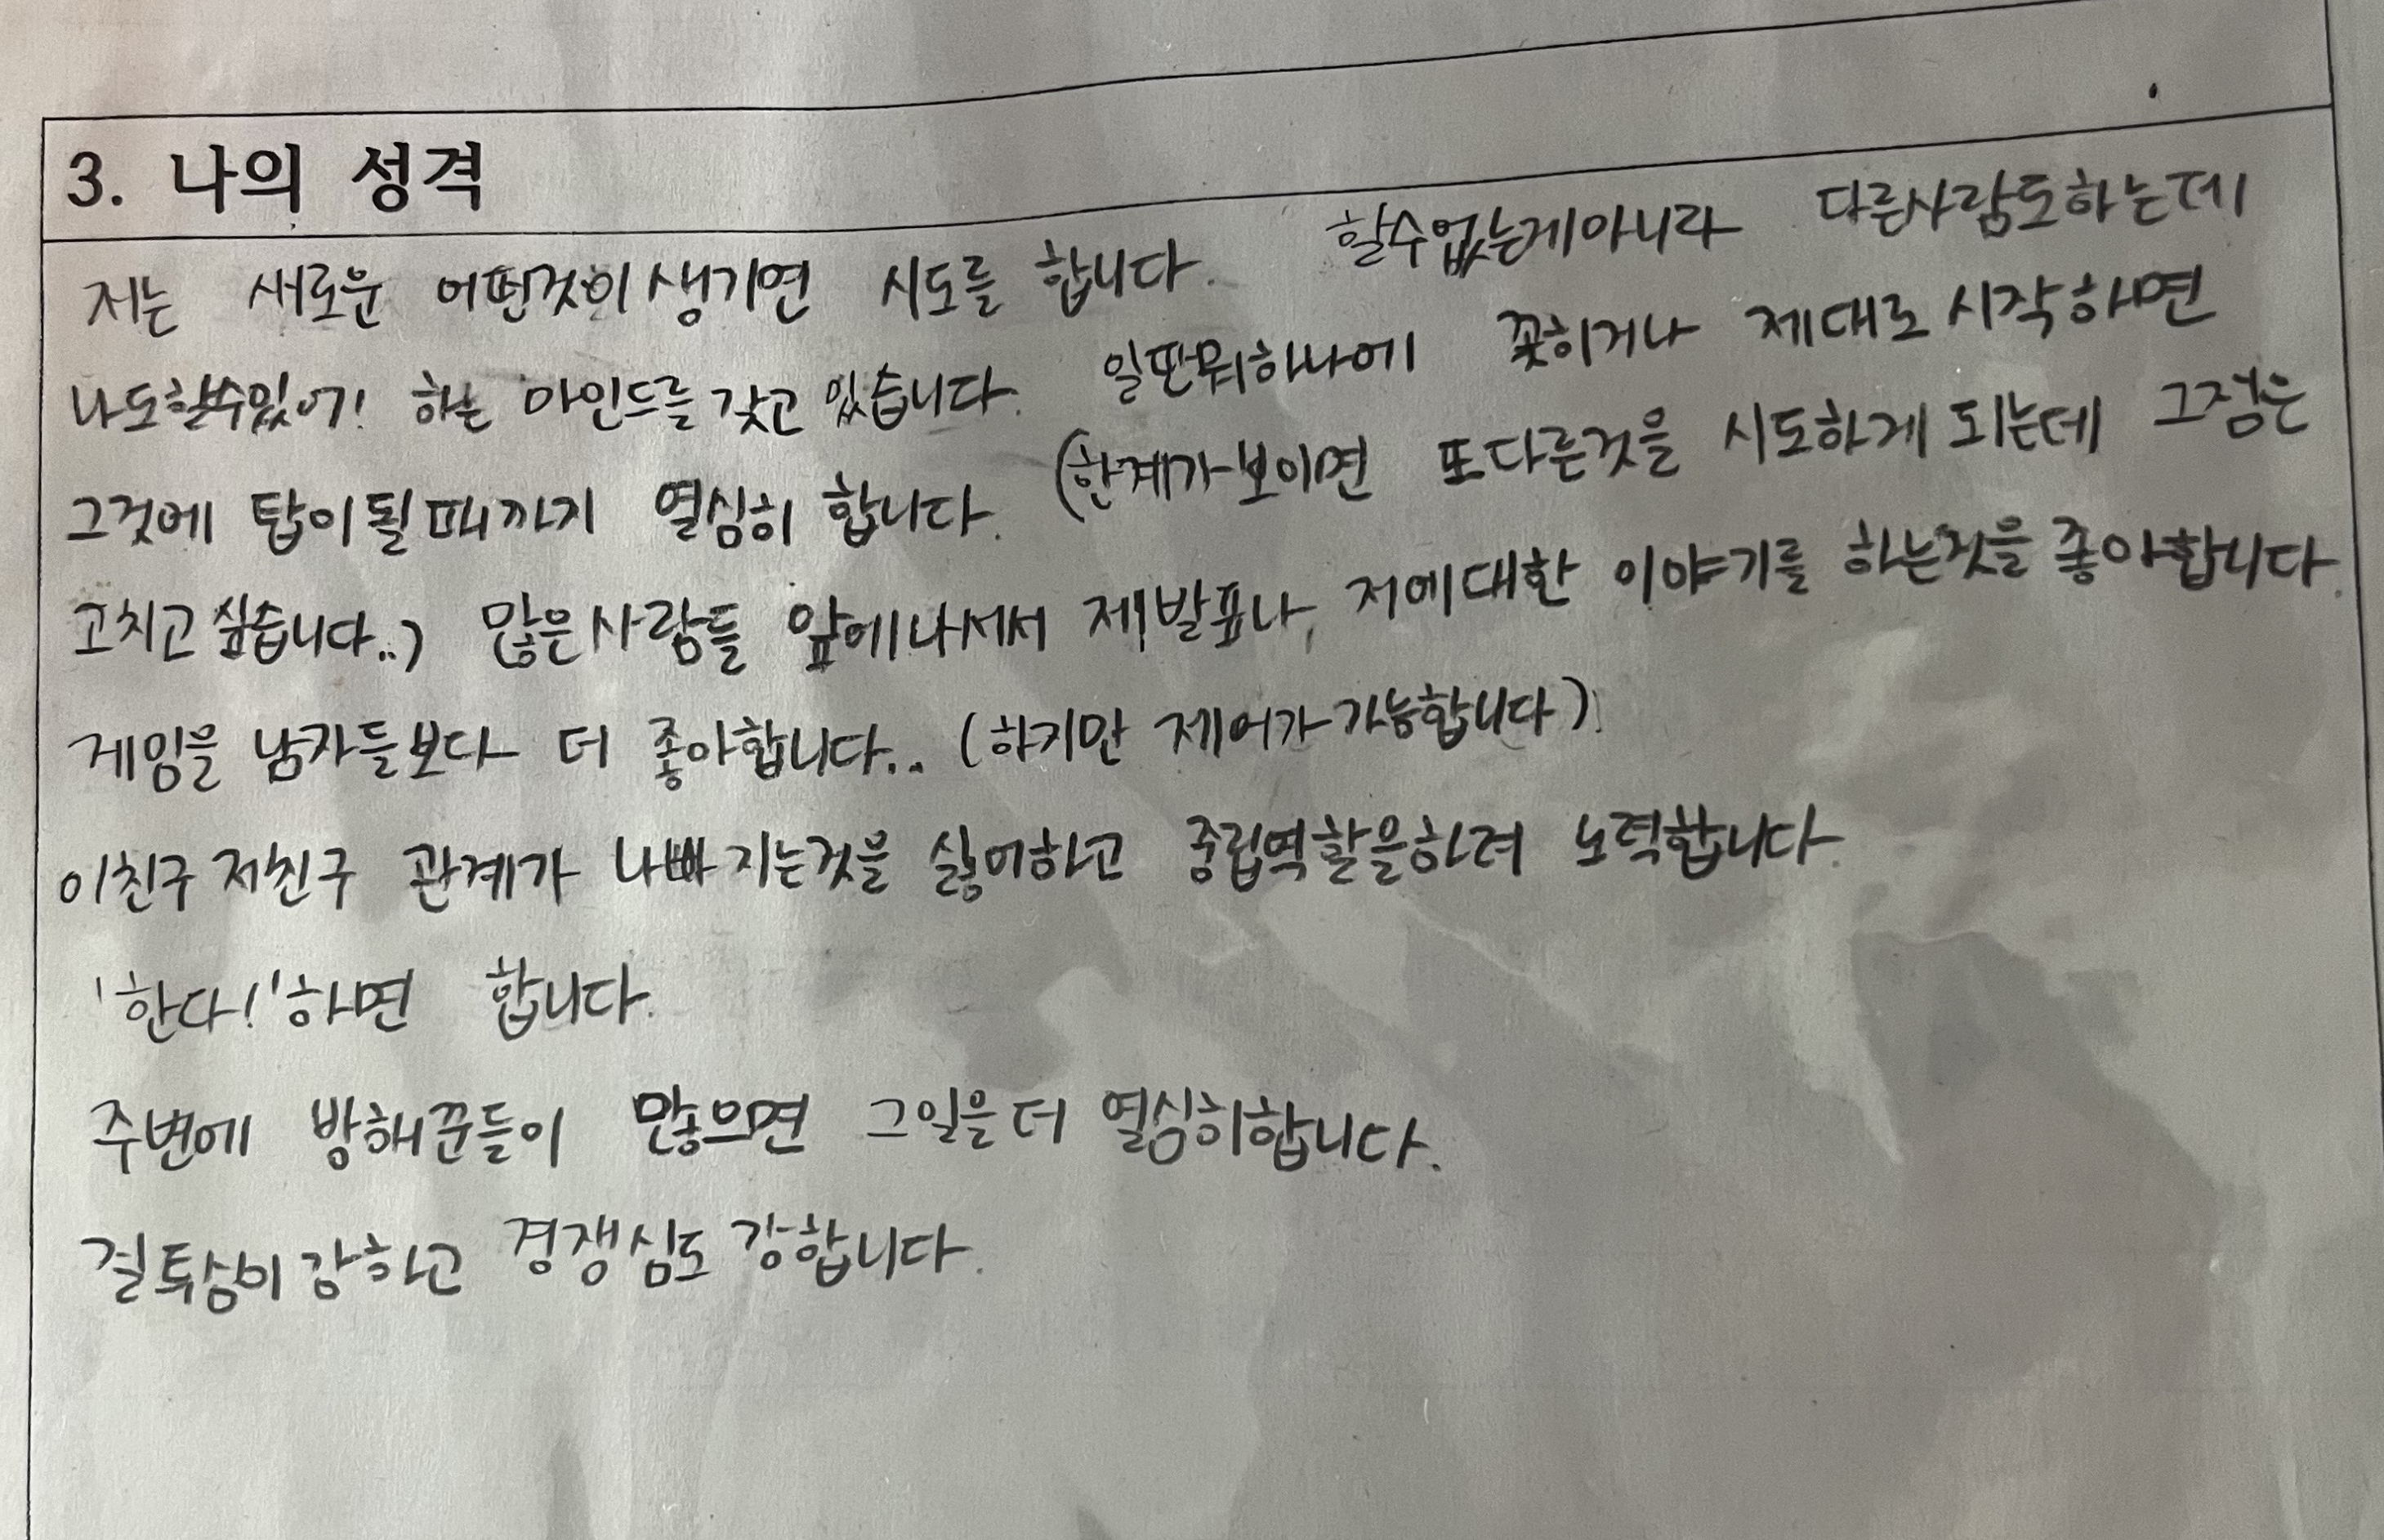 3. 나의 성격
저는 새로운 어떤것이 생기면 시도를 합니다. 할수없는게아니라 다른사람도하는데
나도할수있어! 하는 마인드를 갖고 있습니다. 일딴뭐하나에 꽂히거나 제대로 시작하면
그것에 탑이될때까지 열심히 합니다. (한계가보이면 또다른것을 시도하게 되는데 그점은
고치고싶습니다..) 많은사람들 앞에나서서 제발표나, 저에대한 이야기를 하는것을 좋아합니다.
게임을 남자들보다 더 좋아합니다.. (하지만 제어가가능합니다)
이친구 저친구 관계가 나빠지는것을 싫어하고 중립역할을하려 노력합니다.
'한다!'하면 합니다.
주변에 방해꾼들이 많으면 그일을더 열심히합니다.
질투심이강하고 경쟁심도 강합니다.